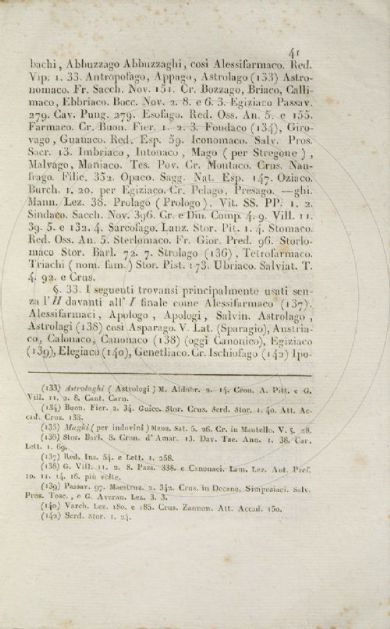 41
bachi, Abbuzzago Abbuzzaghi, così Alessifarmaco. Red.
Vip. 1. 33. Antropofago, Appago, Astrolago (133) Astro-
nomaco. Fr. Sacch. Nov. 151. Cr. Bozzago, Briaco, Calli-
maco, Ebbriaco. Bocc. Nov. 2. 8. e 6. 3. Egiziaco Passav.
279. Cav. Pung. 279. Esofago. Red. Oss. An. 5. e 155.
Farmaco. Cr. Buon. Fier. 1. 2. 3. Fondaco (134), Giro-
vago, Guanaco. Red. Esp. 59. Iconomaco. Salv. Pros.
Sacr. 13. Imbriaco, Intonaco, Mago (per Stregone),
Malvago, Maniaco. Tes. Pov. Cr. Montaco. Crus. Nau-
frago. Filic. 352. Opaco. Sagg. Nat. Esp. 147. Oziaco.
Burch. 1. 20. per Egiziaco. Cr. Pelago, Presago. —ghi.
Mann. Lez. 38. Prolago (Prologo). Vit. SS. PP. 1. 2.
Sindaco. Sacch. Nov. 396. Cr. e Din. Comp. 4. 9. Vill. 11.
39. 5. e 132. 4. Sarcofago. Lanz. Stor. Pit. 1. 4. Stomaco.
Red. Oss. An. 5. Sterlomaco. Fr. Gior. Pred. 96. Storlo-
maco Stor. Barl. 72. 7. Strolago (136), Tetrofarmaco.
Triachi (nom. fam.) Stor. Pist. 173. Ubriaco. Salviat. T.
4. 92. e Crus.
§. 33. I seguenti trovansi principalmente usati sen-
za l'H davanti all' I finale come Alessifarmaco (137),
Alessifarmaci, Apologo, Apologi, Salvin. Astrologo,
Astrologi (138) così Asparago. V. Lat. (Sparagio), Austria-
co, Calonaco, Canonaco (138) (oggi Canonico), Egiziaco
(139), Elegiaco (140), Genetliaco. Cr. Ischiofago (142) Ipo-
(133) Astrolaghi (Astrologi) M. Aldobr. 2. 14. Cron. A. Pitt. e G.
Vill. 11. 2. 8. Cant. Carn.
(134) Buon. Fier. 2. 34. Guicc. Stor. Crus. Serd. Stor. 1. 40. Att. Ac-
cad. Crus. 133.
(135) Maghi (per indovini) Menz. Sat. 5. 26. Cr. in Mantello. V. 5. 28.
(136) Stor. Barl. 8. Cron. d' Amar. 13. Dav. Tac. Ann. 1. 38. Car.
Lett. 1. 69.
(137) Red. Ins. 54. e Lett. 1. 258.
(138) G. Vill. 11. 2. 8. Pass. 338. e Canonaci. Lam. Lez. Ant. Pref.
10. 11. 14. 16. più volte.
(139) Passav. 97. Maestruz. 2. 342. Crus. in Decano. Simposiaci. Salv.
Pros. Tosc., e G. Averan. Lez. 3. 3.
(140) Varch. Lez. 180. e 185. Crus. Zannon. Att. Accad. 150.
(142) Serd. Stor. 1. 24.